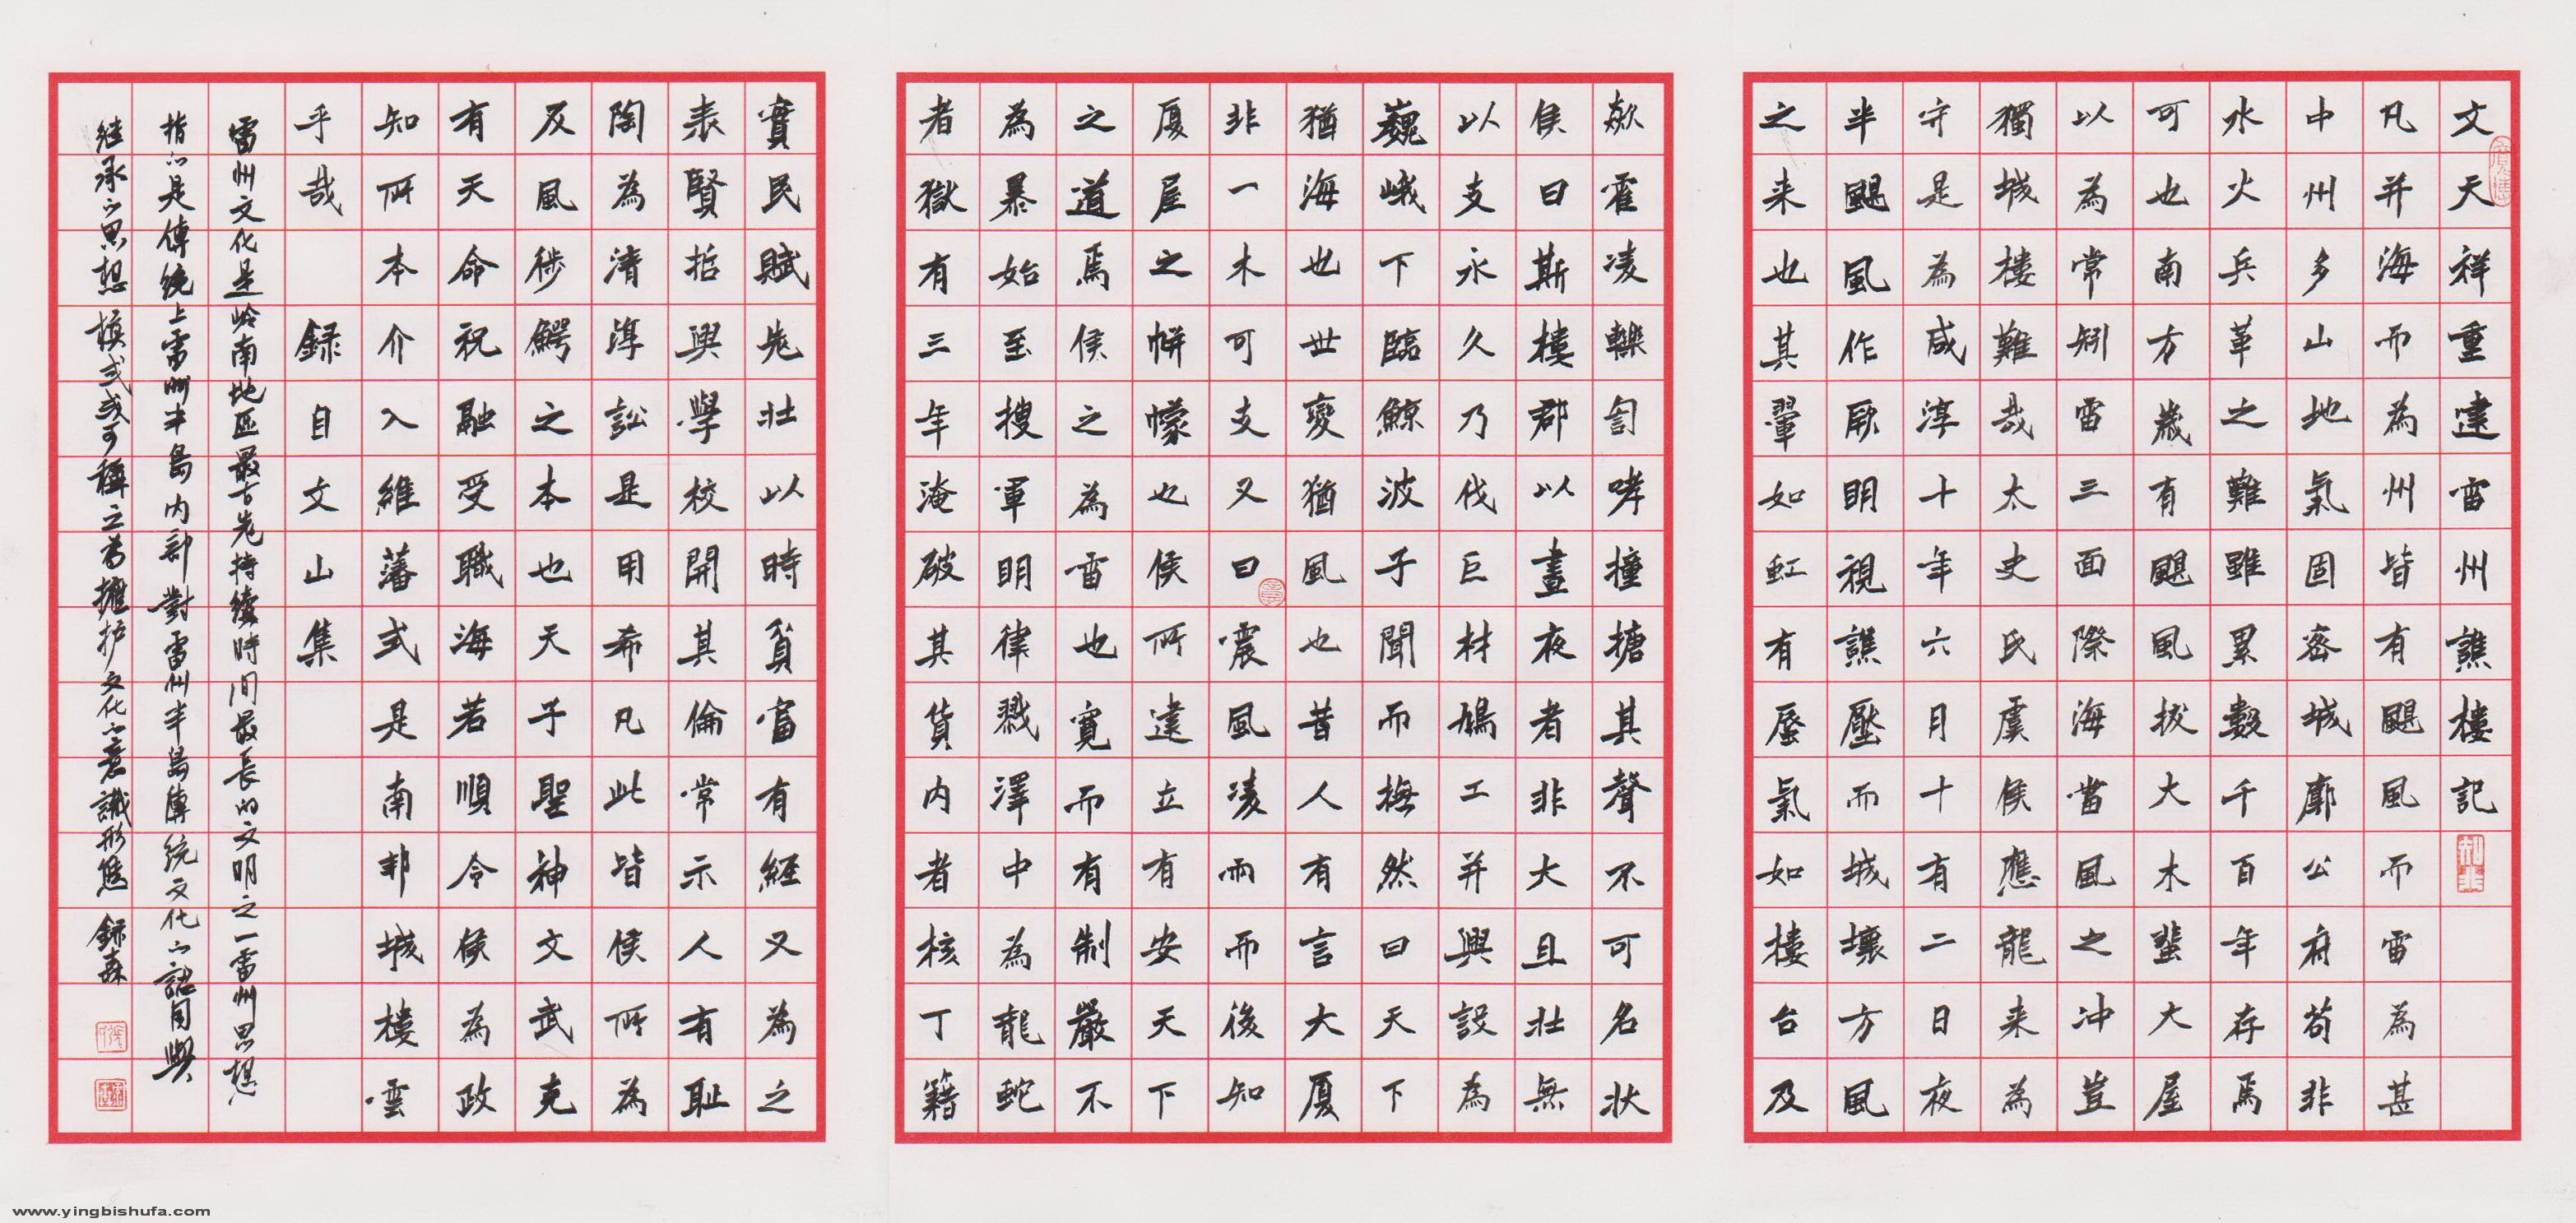 文天祥重建雷州譙樓記
凡并海而為州皆有颶風而雷為甚
中州多山地氣固密城廓公府苟非
水火兵革之難雖累數千百年存焉
可也南方歲有颶風拔大木蜚大屋
以為常矧雷三面際海當風之冲豈
獨城樓難哉太史氏虞侯應龍来為
守是為咸淳十年六月十有二日夜
半颶風作厥明視譙壓而城壞方風
之来也其翬如虹有蜃氣如樓台及
欻霍凌轢訇哮撞搪其聲不可名狀
侯曰斯樓郡以晝夜者非大且壯無
以支永久乃伐巨材鳩工并興設為
巍峨下臨鯨波子聞而撫然曰天下
猶海也世變猶風也昔人有言大厦
非一木可支又曰震風凌雨而後知
厦屋之帡幪也侯所建立有安天下
之道焉侯之為雷也寬而有制嚴不
為暴始至搜軍明律戮澤中為龍蛇
者獄有三年淹破其貨内者核丁籍
實民賦先壯以時貧富有經又為之
表賢哲興學校開其倫常示人有耻
陶為清淳訟是用希凡此皆侯所為
及風徙鰐之本也天子聖神文武克
有天命祝融受職海若順令侯為政
知所本介入維藩式是南邦城樓雲
乎哉 録自文山集
雷州文化是岭南地區最古老持續時间最長的文明之一雷州思想
指的是傳統上雷州半島内部對雷州半島傳統文化的認同與
继承的思想模式或可稱之為擁护文化的意識形態 録森
www.yingbishufa.com